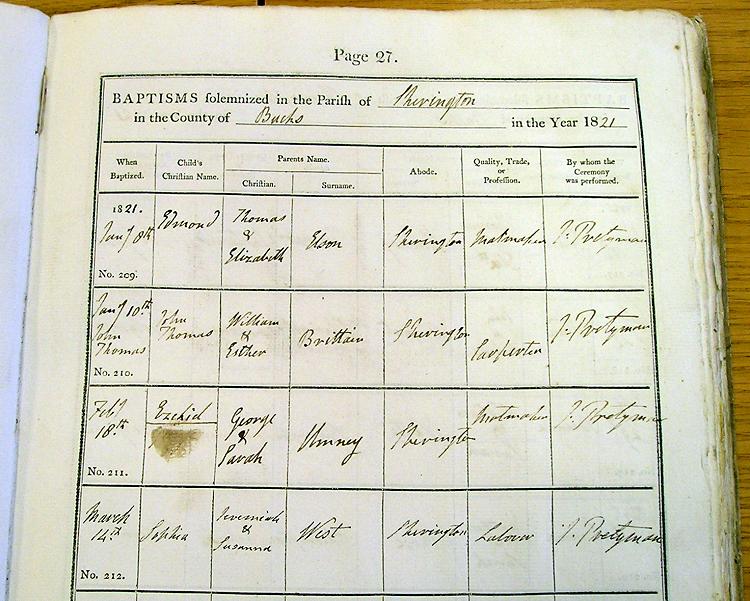 Page 27.
BAPTISMS solemnized in the Parish of Sherington
in the County of Bucks in the Year 1821
When Baptized. Child's Christian Name. Parents Name. Abode. Quality, Trade, or Profession. By whom the Ceremony was performed.
Christian. Surname.
1821.
Jany 8th Edmond Thomas & Elizabeth Elson Sherington Matmaker J. Pretyman
No. 209.
Jany 10th John Thomas John Thomas William & Esther Brittain Sherington Carpenter J. Pretyman
No. 210.
Feby 18th Ezekiel George & Sarah Umney Sherington Matmaker J. Pretyman
No. 211.
March 14th Sophia Jeremiah & Susanna West Sherington Labour J. Pretyman
No. 212.